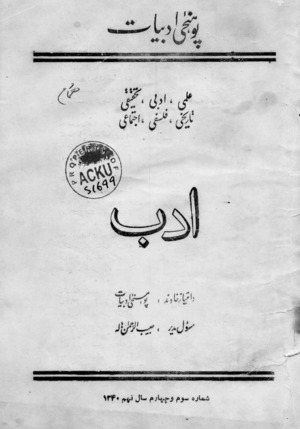 پوهنځی ادبیات
علمی ، ادبی ، تحقیقی
تاریخی ، فلسفی ، اجتماعی
PROPERTY OF
ACKU
51699
ادب
دامتیاز خاوند ، پوهنځی ادبیات
مسؤل مدیر ، حبیب الرحمن هاله
شماره سوم و چهارم سال نهم ۱۳۴۰